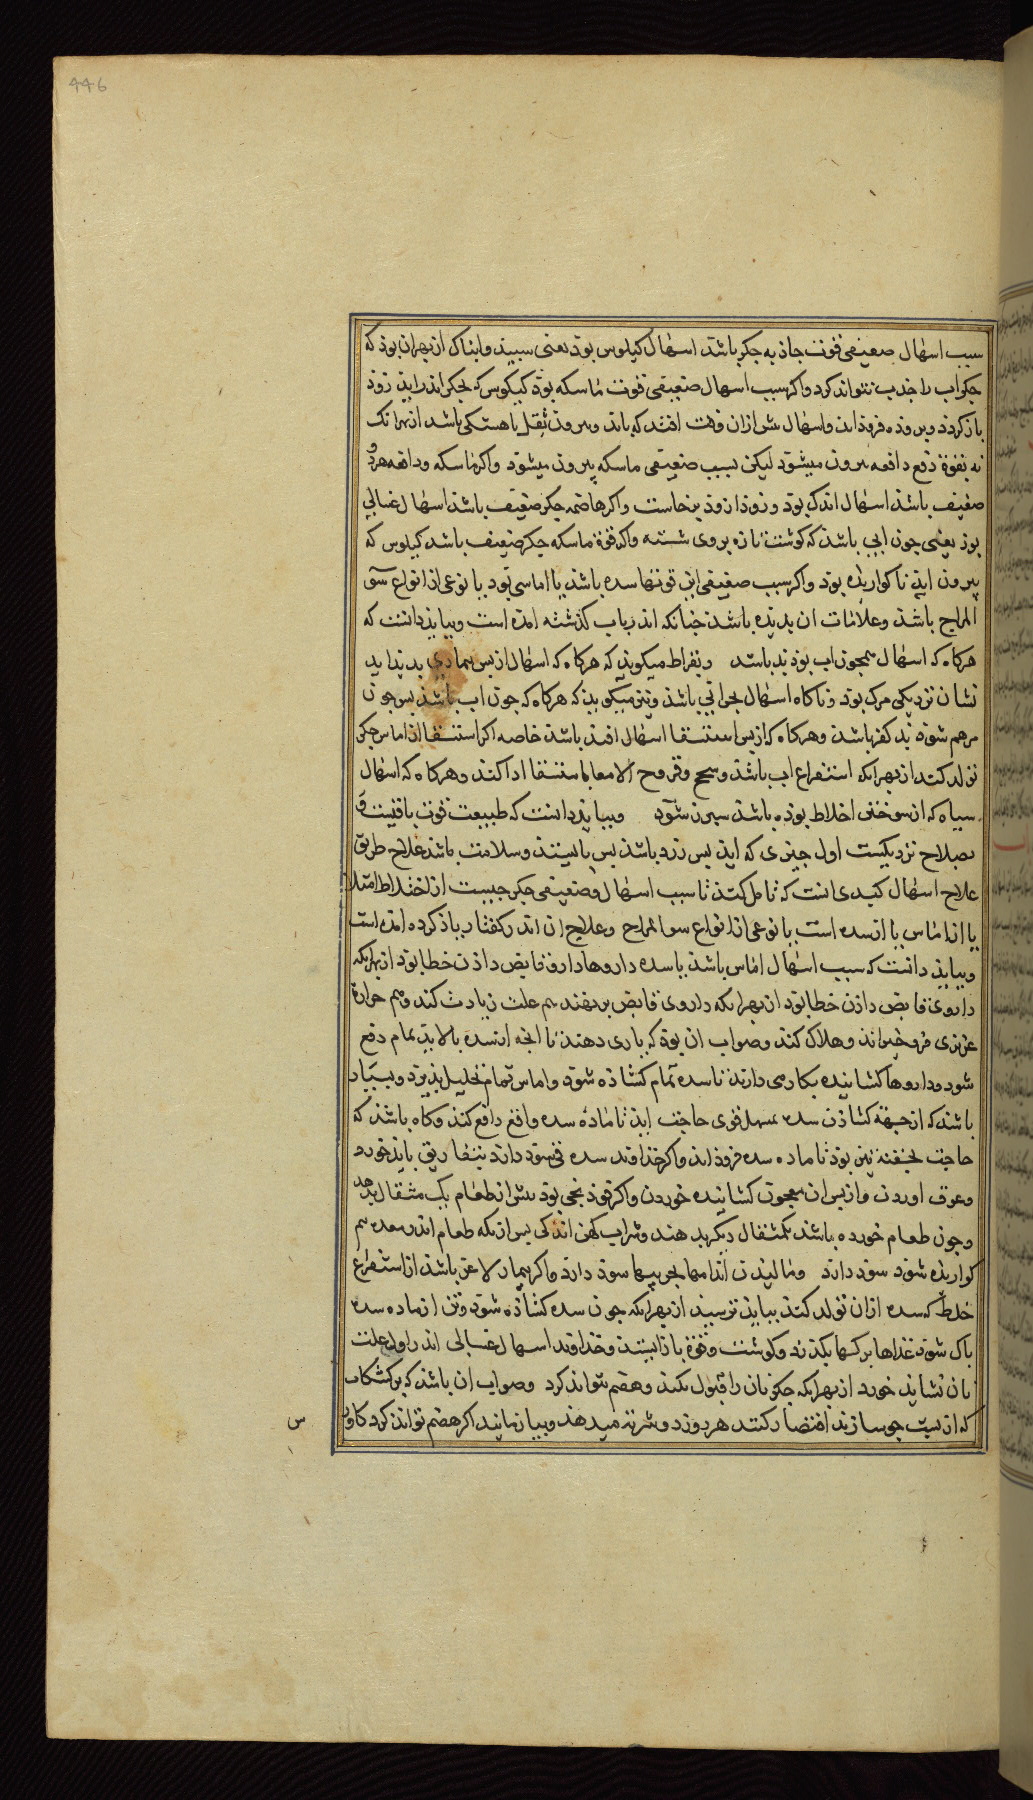 446
سبب اسهال ضعیفی قوت جاذبه جکر باشد اسهال کیلوس بود یعنی سبید و ابناک از بهر ان بود که
جکر اب را جذب نتواند کرد واکر سبب اسهال ضعیفی قوت ماسکه بود کیلوس که بجکر اندر اید زود
باز کردد و بروده فرود اید و اسهال بیش ازان وقت افتد که باید و بیرون ثقل باهستکی باشد از بهر انک
نه بقوة دفع دافعه بیرون میشود لیکن بسبب ضعیفی ماسکه بیرون میشود واکر ماسکه و دافعه هردو
ضعیف باشد اسهال اندک بود و زود از زود برخاست واکر هاضمه جکر ضعیف باشد اسهال غسالی
بود یعنی چون ابی باشد که کوشت تازه بروی شسته واکر قوة ماسکه جکر ضعیف باشد کیلوس که
بیرون اید ناکواریده بود واکر سبب ضعیفی این قوتها سده باشد یا اماسی بود یا نوعی از انواع سو
المزاج باشد وعلامات ان بدیده باشد جنانکه اندر باب کذشته امده است وبباید دانست که
هرکاه که اسهال همجون اب بود بد باشد وبقراط میکوید که هرکاه که اسهال از بس بیماری بدید اید
نشان نزدیکی مرک بود و ناکاه اسهال بحرانی باشد ونیز میکوید که هرکاه که جون اب باشد بس جون
مرهم شود بد کفر باشد وهرکاه که از بس استسقا اسهال افتد باشد خاصه اکر استسقا از اماس جکر
تولد کند از بهر انکه استفراغ اب باشد وسحج وقروح الامعا با استسقا ادا کند وهرکاه که اسهال
سیاه که از سوختن اخلاط بوده باشد سبزن شود وبباید دانست که طبیعت قوت یافتست و
بصلاح نزدیکست اول جیزی که اید بس زرد باشد بس بایستد وسلامت باشد علاج طریق
علاج اسهال کبدی انست که تامل کنند تا سبب اسهال وضعیفی جکر جیست از اختلاط امتلا
یا از اماس یا از سده است یا نوعی از انواع سو المزاج وعلاج ان اندر کفتار یاذ کرده امده است
وبباید دانست که سبب اسهال اماس باشد یا سده داروها دارو قابض دادن خطا بود از بهر انکه
داروی قابض دادن خطا بود از بهر انکه داروی قابض بر بفند هم علت زیادت کند وهم حرارة
غریزی فرو خیراند وهلاک کند وصواب ان بود که یاری دهند تا انجه از سده بالاید تمام دفع
شود وداروها کشاینده بکار می دارند تا سده تمام کشاده شود واماس تمام تحلیل بذیرد وبسیار
باشد که از جهة کشادن سده بمسهل قوی حاجت اید تا مادۀ سده واقع دافع کند وکاه باشد که
حاجت بحقنه تیز بود تا ماده سده فرود اید واکر خداوند سده قی سود دارد بتفاریق باید خورد
وعرق اوردن واز بس ان معجون کشاینده خوردن واکر قوذنجی بود بیش از طعام یک مثقال بدهد
وجون طعام خورده باشد یکمثقال دیکر بدهند وشراب کهن اندکی بس ازانکه طعام اندر معده هم
کواریده شود سود دارد ومالیدن اندامها بجربیها سود دارد واکر بیمار لاغر باشد از استفراغ
خلط که سده ازان تولد کند بباید ترسید از بهر انکه جون سده کشاده شود وتن از ماده سده
باک شود غذاها بر کها بکذرد وکوشت وقوة باز ایستد وخداوند اسهال غسالی اندر اول علت
نان نشاید خورد از بهر انکه جکر نان را قبول نکند وهضم نتواند کرد وصواب ان باشد که بر کشکاب
که از بست جو سازند اقتصار کنند هر روزد وشربت میدهند وبیازمایند اکر هضم تواند کرد کاورس
س